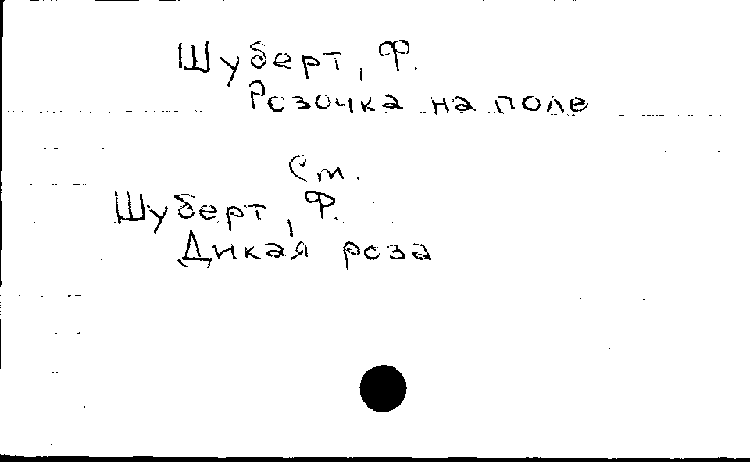 Шуберт, Ф.
Розочка на поле
См.
Шуберт, Ф.
Дикая роза